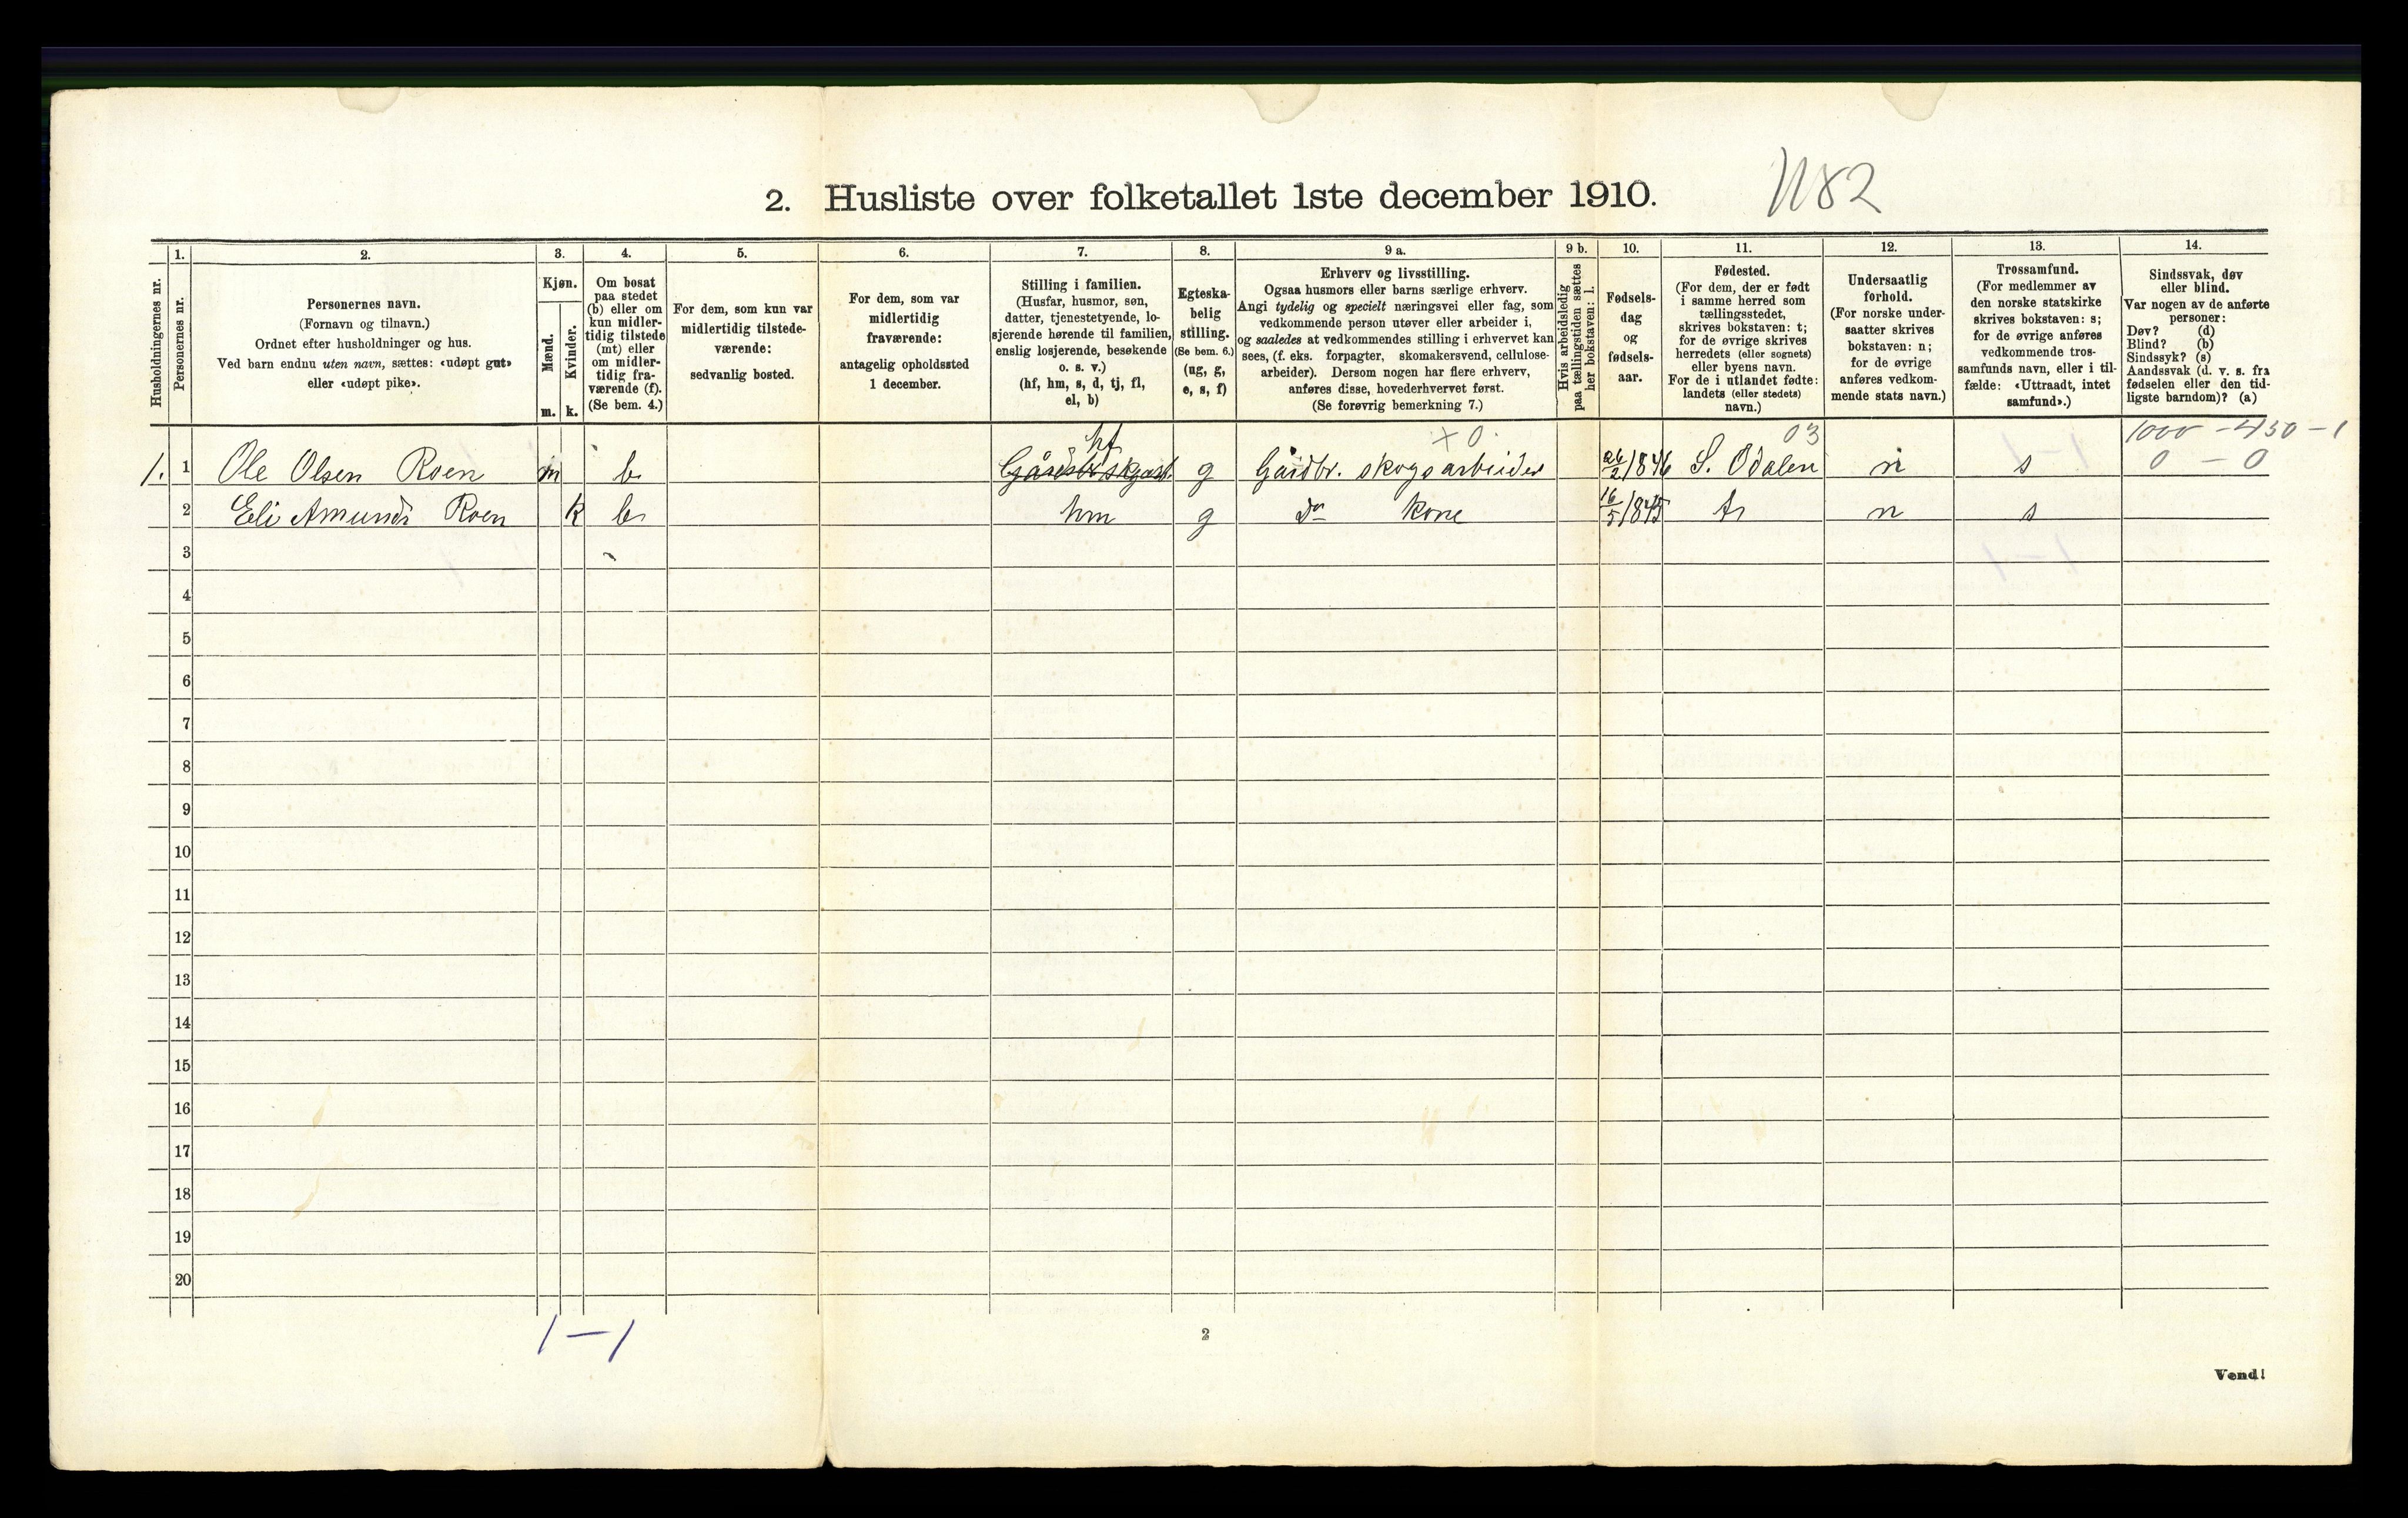 2. Husliste over folketallet 1ste december 1910. 1182
Husholdningernes nr.
1.
Personernes nr.
2.
Personernes navn.
(Fornavn og tilnavn.)
Ordnet efter husholdninger og hus.
Ved barn endnu uten navn, sættes: «udøpt gut»
eller «udøpt pike».
3.
Kjøn.
Mænd.
m.
Kvinder.
k.
4.
Om bosat
paa stedet
(b) eller om
kun midler-
tidig tilstede
(mt) eller
om midler-
tidig fra-
værende (f).
(Se bem. 4.)
5.
For dem, som kun var
midlertidig tilstede-
værende:
sedvanlig bosted.
6.
For dem, som var
midlertidig
fraværende:
antagelig opholdssted
1 december.
7.
Stilling i familien.
(Husfar, husmor, søn,
datter, tjenestetyende, lo-
sjerende hørende til familien,
enslig losjerende, besøkende
o. s. v.)
(hf, hm, s, d, tj, fl,
el, b)
8.
Egteska-
belig
stilling.
(Se bem. 6.)
(ug, g,
e, s, f)
9 a.
Erhverv og livsstilling.
Ogsaa husmors eller barns særlige erhverv.
Angi tydelig og specielt næringsvei eller fag, som
vedkommende person utøver eller arbeider i,
og saaledes at vedkommendes stilling i erhvervet kan
sees, (f. eks. forpagter, skomakersvend, cellulose-
arbeider). Dersom nogen har flere erhverv,
anføres disse, hovederhvervet først.
(Se forøvrig bemerkning 7.)
9 b.
Hvis arbeidsledig
paa tællingstiden sættes
her bokstaven: l.
10.
Fødsels-
dag
og
fødsels-
aar.
11.
Fødested.
(For dem, der er født
i samme herred som
tællingsstedet,
skrives bokstaven: t;
for de øvrige skrives
herredets (eller sognets)
eller byens navn.
For de i utlandet fødte:
landets (eller stedets)
navn.)
12.
Undersaatlig
forhold.
(For norske under-
saatter skrives
bokstaven: n;
for de øvrige
anføres vedkom-
mende stats navn.)
13.
Trossamfund.
(For medlemmer av
den norske statskirke
skrives bokstaven: s;
for de øvrige anføres
vedkommende tros-
samfunds navn, eller i til-
fælde: «Uttraadt, intet
samfund».)
14.
Sindssvak, døv
eller blind.
Var nogen av de anførte
personer:
Døv? (d)
Blind? (b)
Sindssyk? (s)
Aandssvak (d. v. s. fra
fødselen eller den tid-
ligste barndom)? (a)
hf + 0. 03 1000 - 450 - 1
1. 1 Ole Olsen Roen m b g Gårdbr. skogsarbeider 26/2 1846 S. Odalen n s 0 - 0
2 Eli Amunds Roen k b hm g do kone 16/5 1845 t n s
3
4
5
6
7
8
9
10
11
12
13
14
15
16
17
18
19
20
1 - 1
2
Vend!